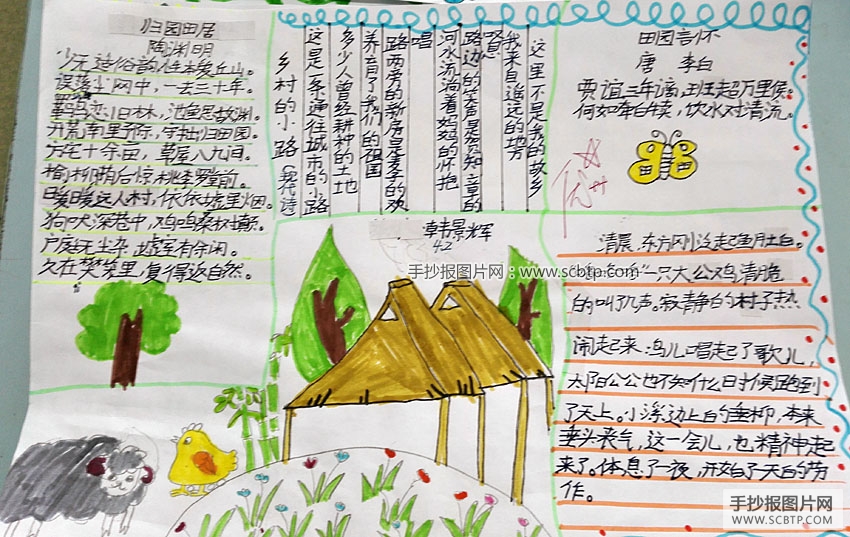 归园田居
陶渊明
少无适俗韵,性本爱丘山。
误落尘网中,一去三十年。
羁鸟恋旧林,池鱼思故渊。
开荒南野际,守拙归园田。
方宅十余亩,草屋八九间。
榆柳荫后檐,桃李罗堂前。
暧暧远人村,依依墟里烟。
狗吠深巷中,鸡鸣桑树颠。
户庭无尘杂,虚室有余闲。
久在樊笼里,复得返自然。
乡村的小路(现代诗)
这是一条通往城市的小路
多少人曾经耕种的土地
养育了我们的祖国
路两旁的新房是麦季的欢
唱
河水流淌着妈妈的怀抱
路边的笑声是
叹息
我来自遥远的地方
这里不是我的故乡
田园言怀
唐 李白
贾谊三年谪,班超万里侯。
何如牵白犊,饮水对清流。
韩景辉
42
手抄报图片网:www.scbtp.com
清晨,东方刚泛起鱼肚白。
一只大公鸡清脆
的叫了几声。寂静的村子热
闹起来,鸟儿唱起了歌儿,
太阳公公也不知什么时候跑到
了天上。小溪边上的垂柳,本来
垂头丧气,这一会儿,也精神起
来了。休息了一夜,开始了一天的劳
作。
手抄报图片网
WWW.SCBTP.COM